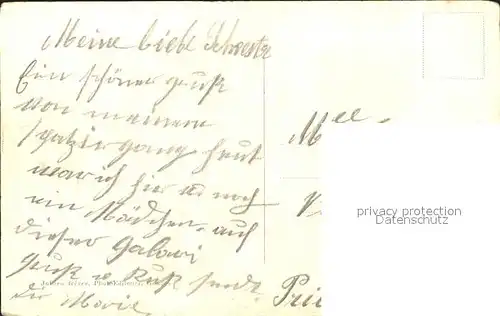 Meine liebe Schwester
Ein schöner gruß
von meinem
spatziergang heut
war ich hir u noch
ein Mädchen auf
dieser Galowi
gruß u Kuß sendt
dir Marie
Mlle
privacy protection
Datenschutz